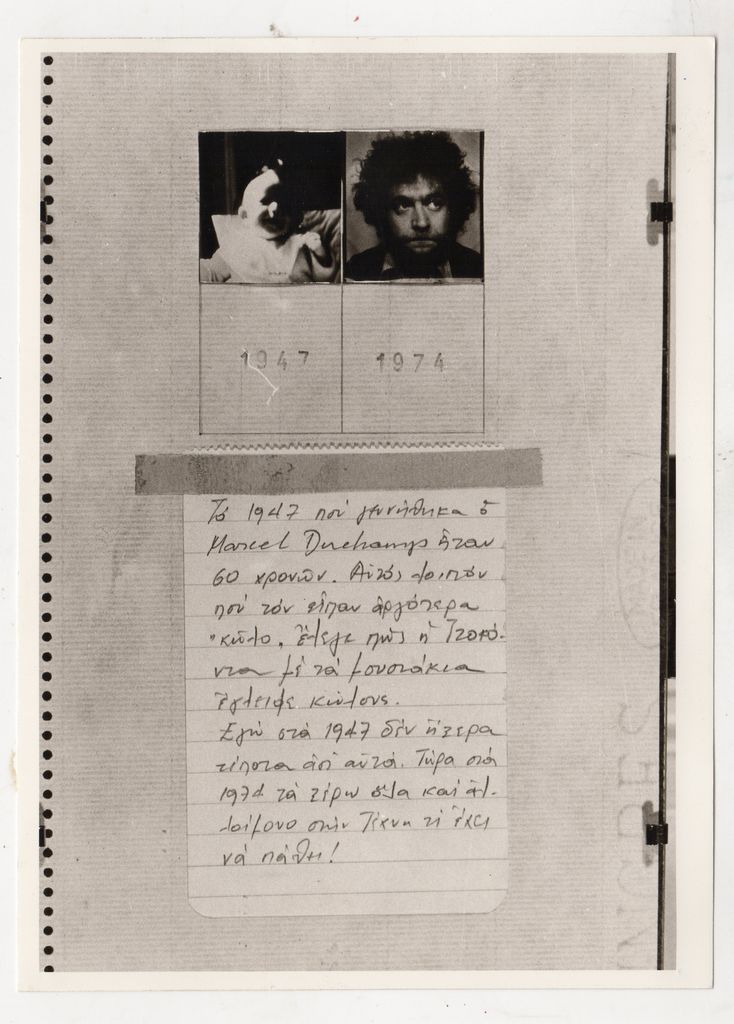 1947 1974
Τό 1947 πού γεννήθηκα ὁ
Marcel Duchamps ἦταν
60 χρονῶν. Αὐτός λοιπόν
πού τόν εἶπαν ἀργότερα
κῶλο, ἔλεγε πώς ἡ Τζοκό-
ντα μέ τά μουστάκια
ἔγλειφε κώλους.
Ἐγώ στά 1947 δέν ἤξερα
τίποτα ἀπ' αὐτά. Τώρα στά
1974 τά ξέρω ὅλα καί ἀλ-
λοίμονο στήν Τέχνη τί ἔχει
νά πάθη!